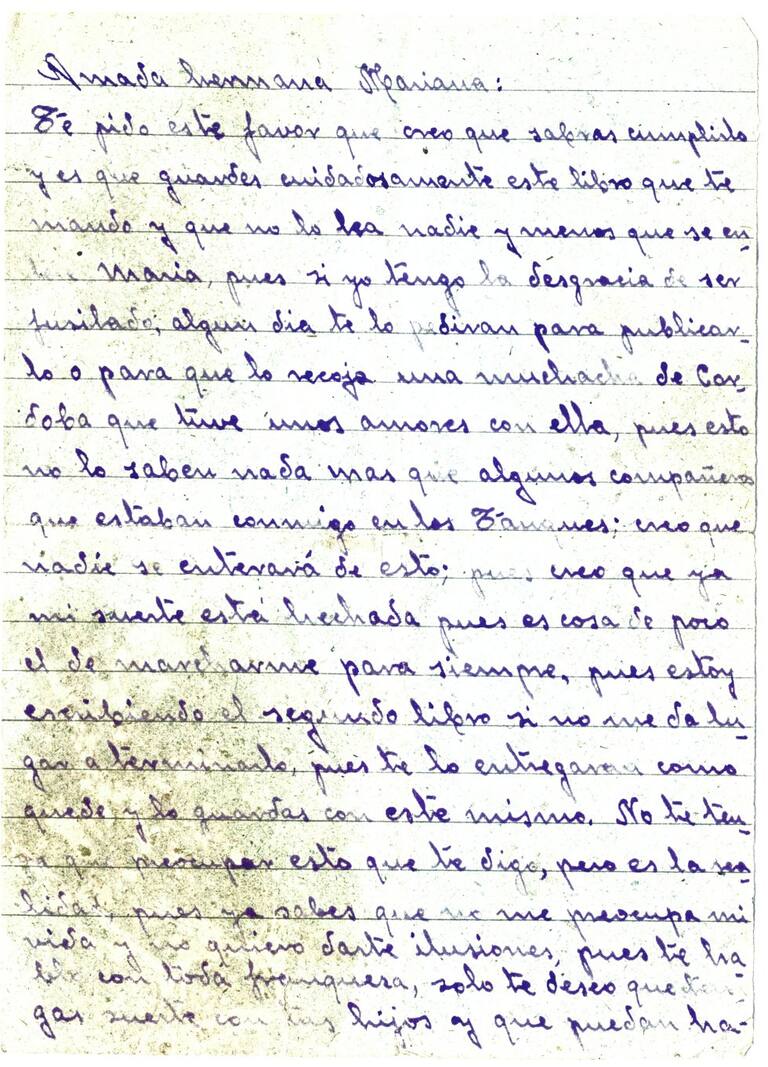 Amada hermana Mariana:
Te pido este favor que creo que sabras cumplirlo
y es que guardes cuidadosamente este libro que te
mando y que no lo lea nadie y menos que se en-
Maria, pues si yo tengo la desgracia de ser
fusilado, algun dia te lo pediran para publicar-
lo o para que lo recoja una muchacha de Cor-
doba que tuve unos amores con ella, pues esto
no lo saben nada mas que algunos compañeros
que estaban conmigo en los Tanques; creo que
nadie se enterará de esto; pues creo que ya
mi suerte está hechada pues es cosa de poco
el de marcharme para siempre, pues estoy
escribiendo el segundo libro si no me da lu-
gar a terminarlo, pues te lo entregaran como
quede, y lo guardas con este mismo. No te ten-
ga que preocupar esto que te digo, pero es la rea-
lidad, pues ya sabes que no me preocupa mi
vida y no quiero darte ilusiones, pues te ha-
blo con toda franqueza, solo te deseo que ten-
gas suerte con tus hijos y que puedan ha-